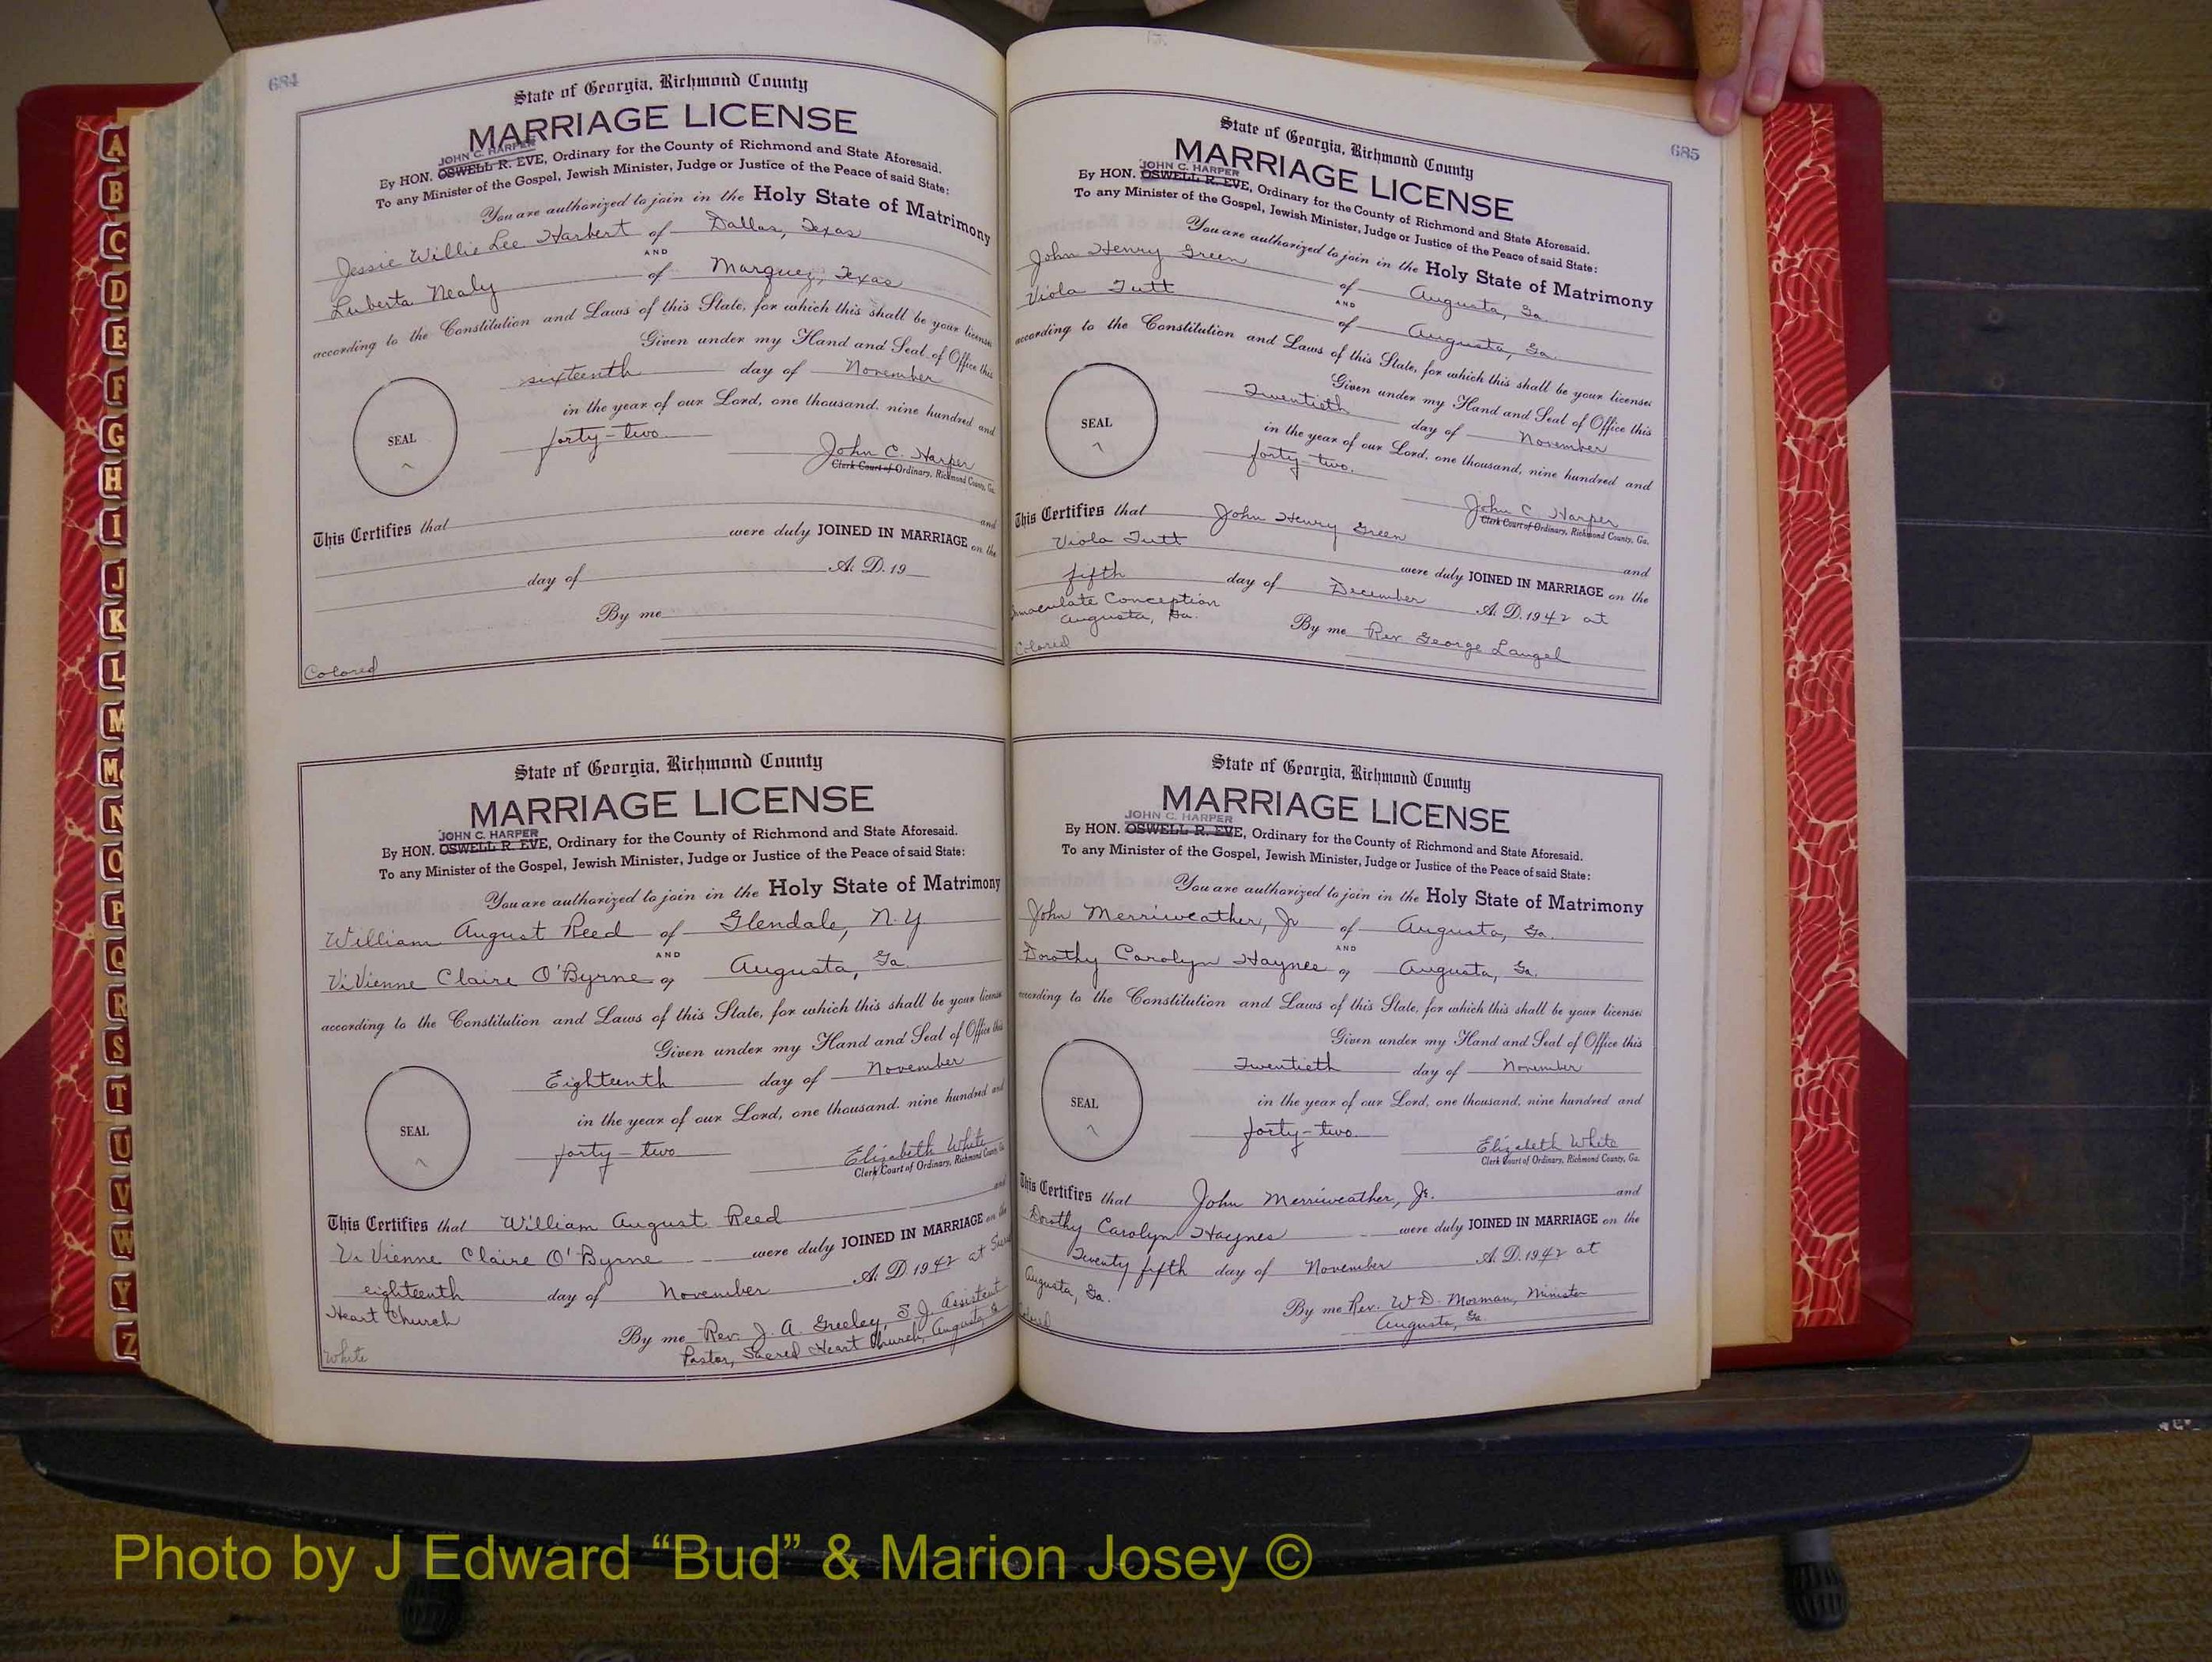 684
State of Georgia, Richmond County
MARRIAGE LICENSE
JOHN C. HARPER
By HON. OSWELL R. EVE, Ordinary for the County of Richmond and State Aforesaid.
To any Minister of the Gospel, Jewish Minister, Judge or Justice of the Peace of said State:
You are authorized to join in the Holy State of Matrimony
Jessie Willie Lee Harbert of Dallas, Texas
AND
Luberta Nealy of Marquez, Texas
according to the Constitution and Laws of this State, for which this shall be your license
Given under my Hand and Seal of Office this
sixteenth day of November
in the year of our Lord, one thousand, nine hundred and
SEAL
forty-two
John C. Harper
Clerk Court of Ordinary, Richmond County, Ga.
This Certifies that and
were duly JOINED IN MARRIAGE on the
day of A. D. 19
By me
Colored
State of Georgia, Richmond County
MARRIAGE LICENSE
JOHN C. HARPER
By HON. OSWELL R. EVE, Ordinary for the County of Richmond and State Aforesaid.
To any Minister of the Gospel, Jewish Minister, Judge or Justice of the Peace of said State:
You are authorized to join in the Holy State of Matrimony
William August Reed of Glendale, N. Y
AND
ViVienne Claire O'Byrne of Augusta, Ga.
according to the Constitution and Laws of this State, for which this shall be your license
Given under my Hand and Seal of Office this
Eighteenth day of November
in the year of our Lord, one thousand, nine hundred and
SEAL
forty-two
Elizabeth White
Clerk Court of Ordinary, Richmond County, Ga.
This Certifies that William August Reed and
ViVienne Claire O'Byrne were duly JOINED IN MARRIAGE on the
eighteenth day of November A. D. 1942 at
Heart Church
By me Rev. J. A. Greeley, S. J. Assistant
Pastor, Sacred Heart Church, Augusta, Ga
White
685
State of Georgia, Richmond County
MARRIAGE LICENSE
JOHN C. HARPER
By HON. OSWELL R. EVE, Ordinary for the County of Richmond and State Aforesaid.
To any Minister of the Gospel, Jewish Minister, Judge or Justice of the Peace of said State:
You are authorized to join in the Holy State of Matrimony
John Henry Green of Augusta, Ga.
AND
Viola Tutt of Augusta, Ga.
according to the Constitution and Laws of this State, for which this shall be your license:
Given under my Hand and Seal of Office this
Twentieth day of November
in the year of our Lord, one thousand, nine hundred and
SEAL
forty-two.
John C. Harper
Clerk Court of Ordinary, Richmond County, Ga.
This Certifies that John Henry Green and
Viola Tutt were duly JOINED IN MARRIAGE on the
fifth day of December A. D. 1942 at
Immaculate Conception
Augusta, Ga.
By me Rev. George Laugel
Colored
State of Georgia, Richmond County
MARRIAGE LICENSE
JOHN C. HARPER
By HON. OSWELL R. EVE, Ordinary for the County of Richmond and State Aforesaid.
To any Minister of the Gospel, Jewish Minister, Judge or Justice of the Peace of said State:
You are authorized to join in the Holy State of Matrimony
John Merriweather, Jr of Augusta, Ga.
AND
Dorothy Carolyn Haynes of Augusta, Ga.
according to the Constitution and Laws of this State, for which this shall be your license:
Given under my Hand and Seal of Office this
Twentieth day of November
in the year of our Lord, one thousand, nine hundred and
SEAL
forty-two.
Elizabeth White
Clerk Court of Ordinary, Richmond County, Ga.
This Certifies that John Merriweather, Jr. and
Dorothy Carolyn Haynes were duly JOINED IN MARRIAGE on the
Twenty fifth day of November A. D. 1942 at
Augusta, Ga.
By me Rev. W. D. Morman, Minister
Augusta, Ga.
Colored
A
B
C
D
E
F
G
H
I
J
K
L
M
Mc
N
O
P
Q
R
S
T
U
V
W
Y
Z
Photo by J Edward “Bud” & Marion Josey ©